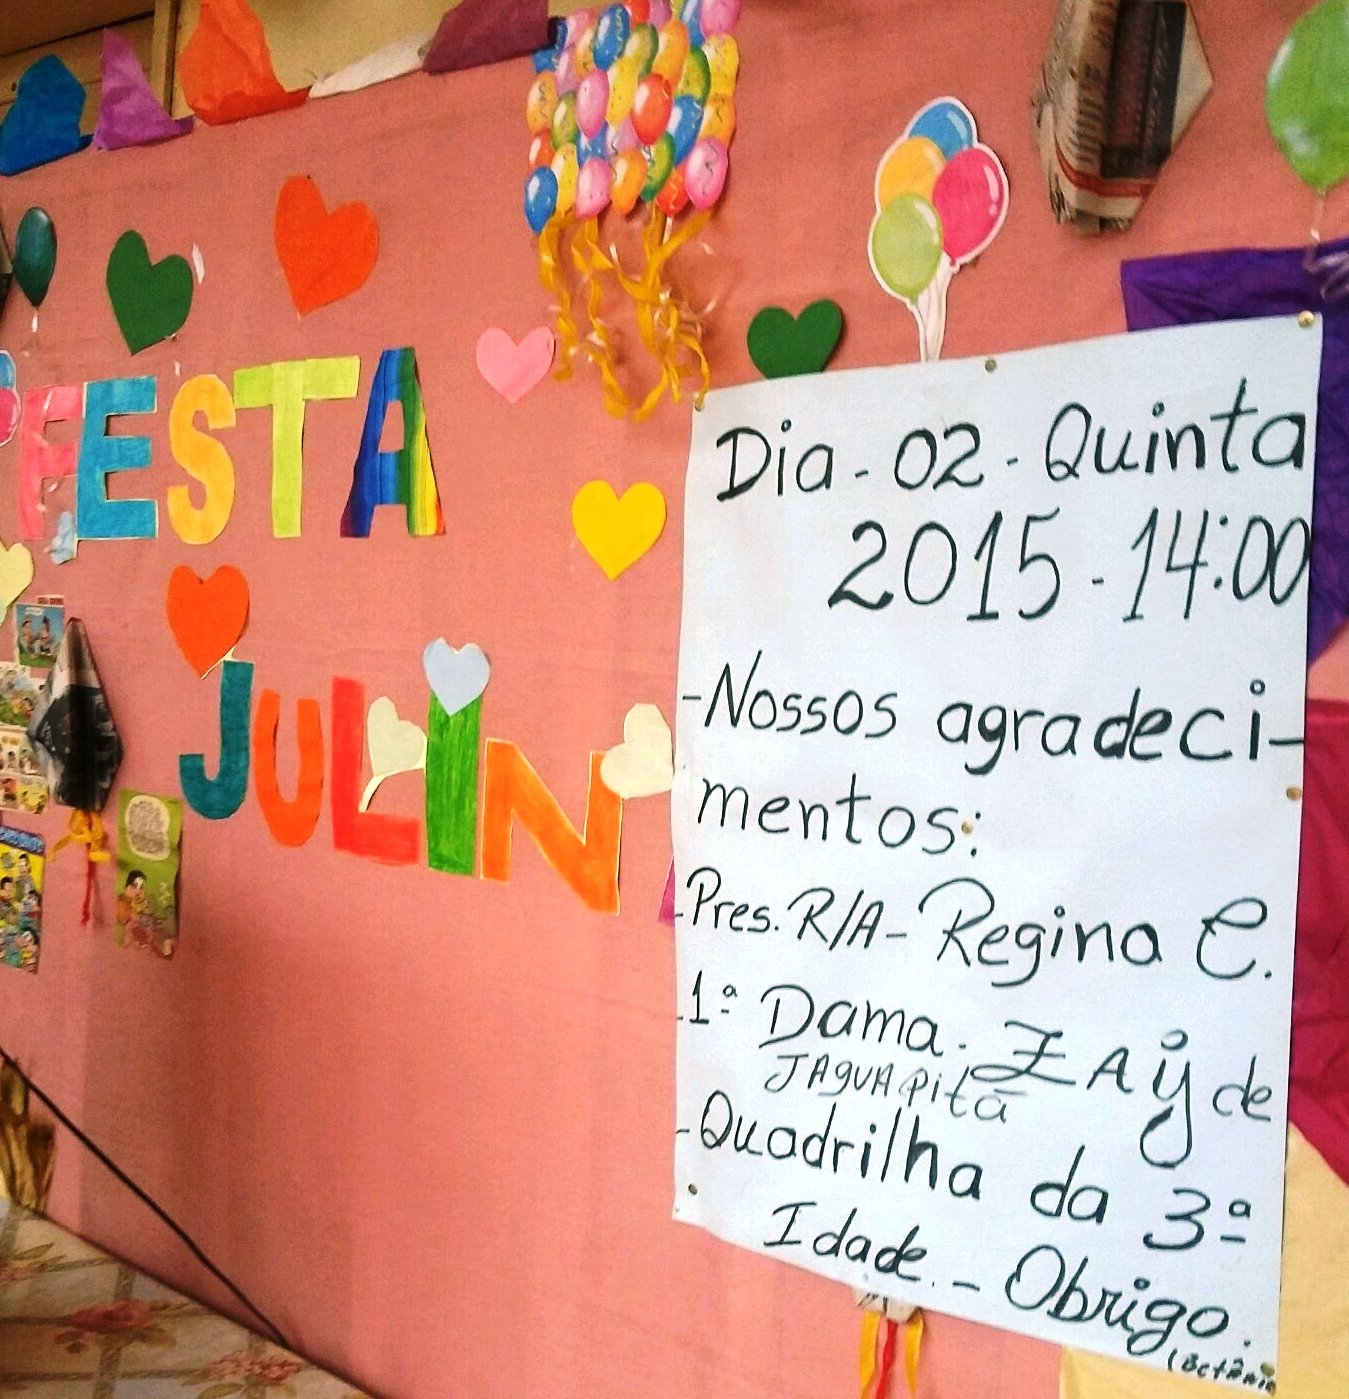 FESTA
JULIN
Dia - 02 - Quinta
2015 - 14:00
- Nossos agradeci-
mentos:
- Pres. R/A - Regina C.
- 1ª Dama. ZAYde
JAGUAPitã
- Quadrilha da 3ª
Idade. - Obrigo.
(Betânia